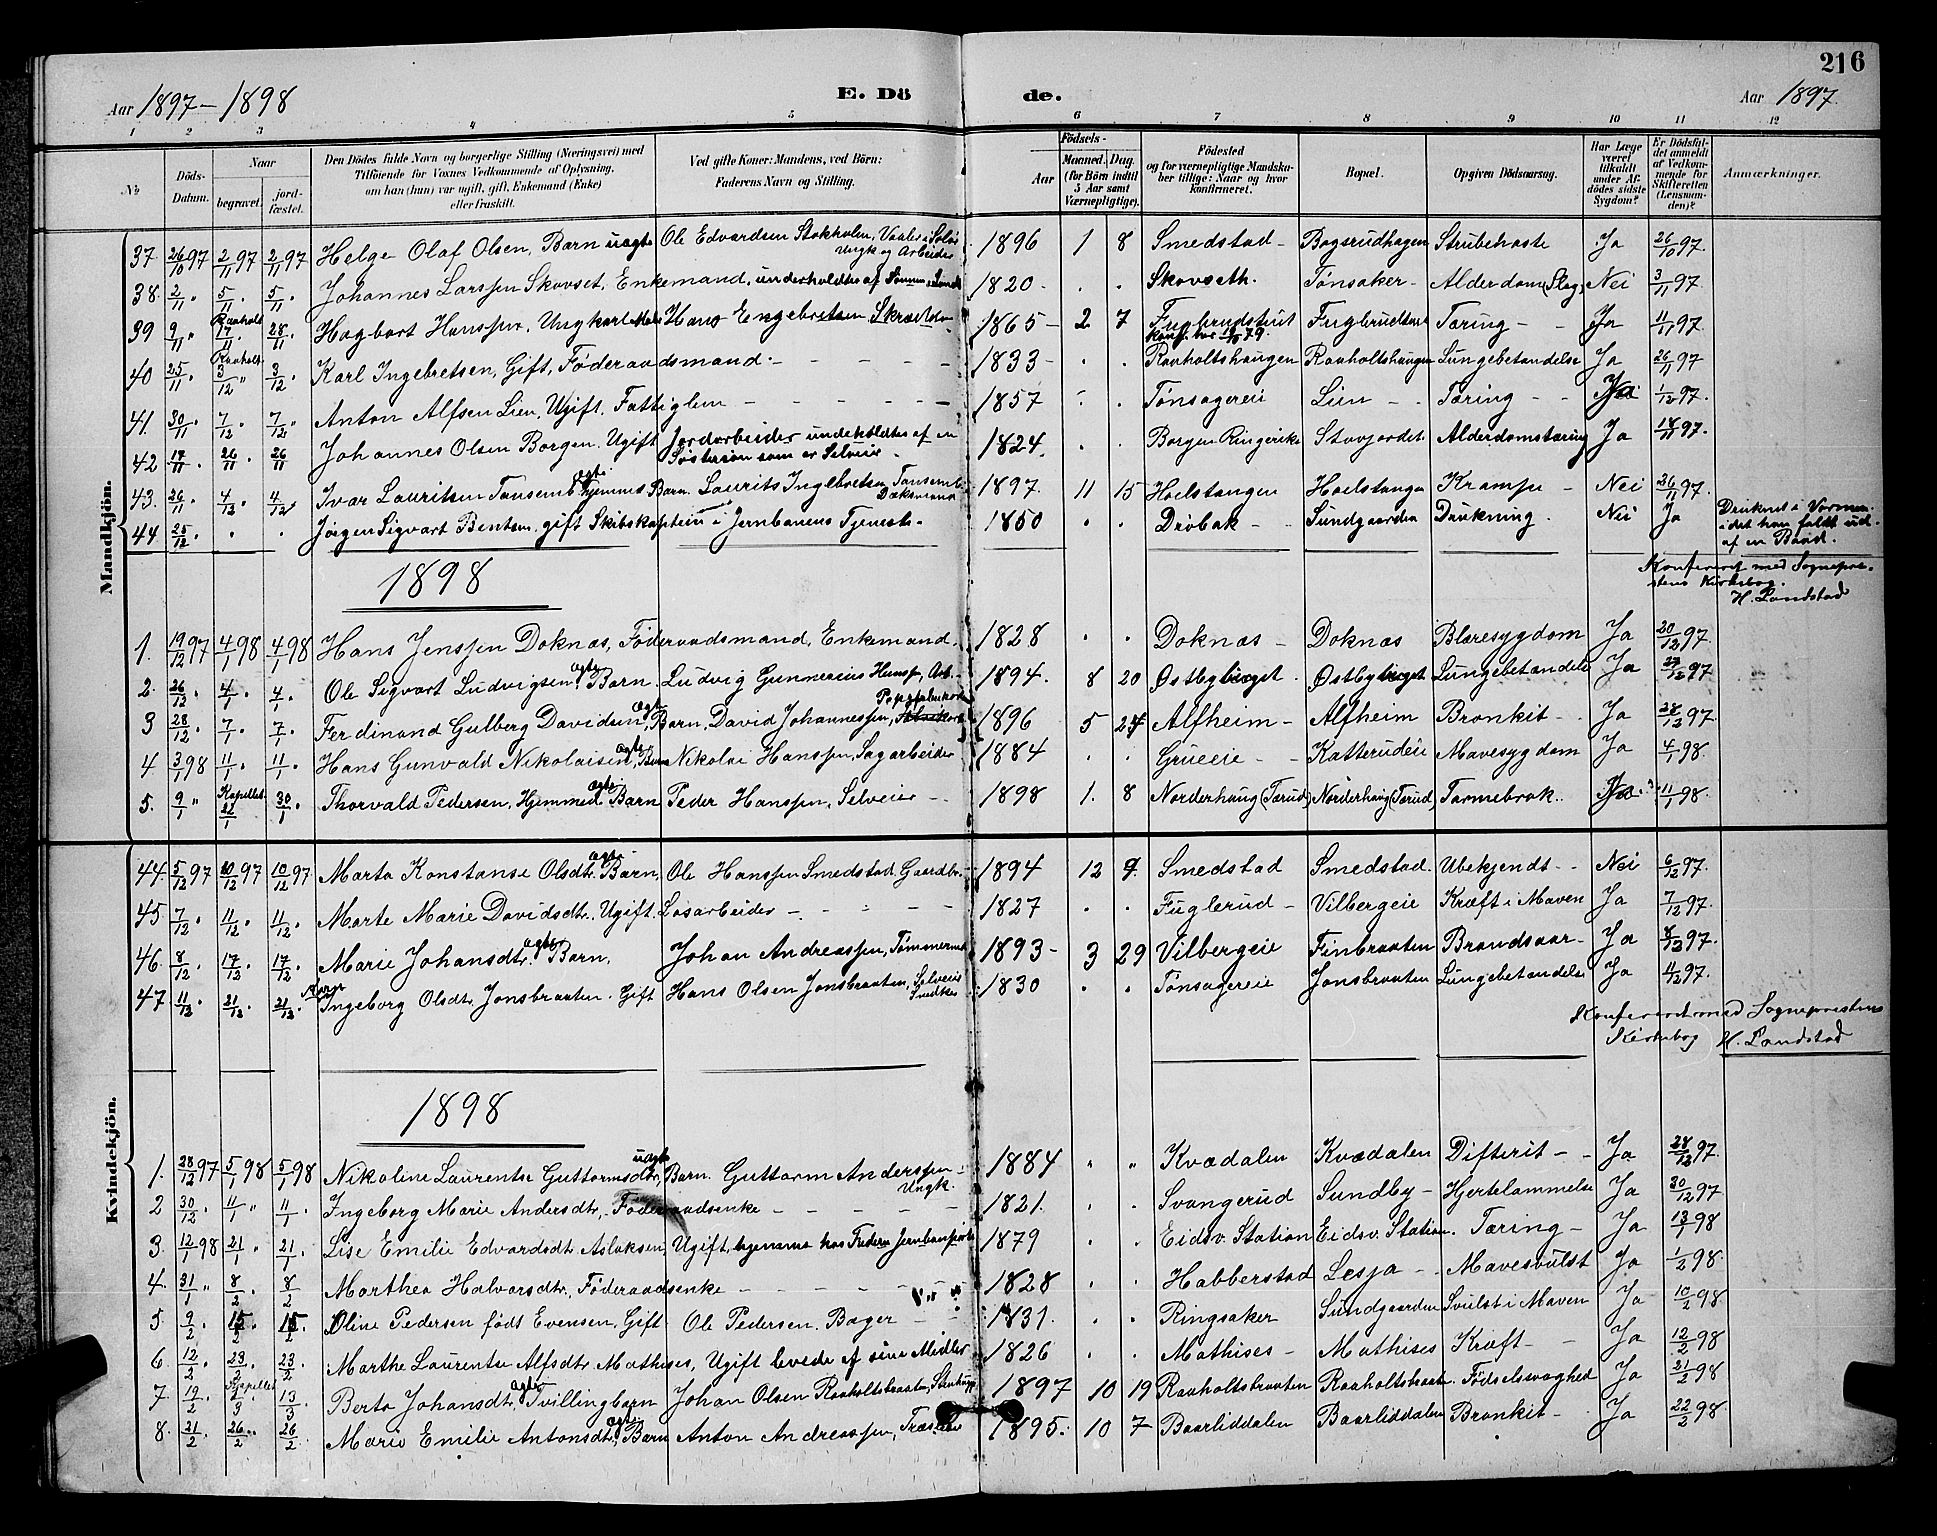 216
Aar 1897-1898 E. Dö de. Aar 1897.
1 2 3 4 5 6 7 8 9 10 11 12
No Döds-Datum. Naar begravet. jord-fæstet. Den Dödes fulde Navn og borgerlige Stilling (Næringsvei) med Tilföiende for Voxnes Vedkommende af Oplysning, om han (hun) var ugift, gift, Enkemand (Enke) eller fraskilt. Ved gifte Koner: Mandens, ved Börn: Faderens Navn og Stilling. Födsels- Aar Maaned. Dag. (for Börn indtil 5 Aar samt Værnepligtige). Födested og for værnepligtige Mandskaber tillige: Naar og hvor konfirmeret. Bopæl. Opgiven Dödsaarsag. Har Læge været tilkaldt under Afdödes sidste Sygdom? Er Dödsfaldet anmeldt af Vedkommende for Skifteretten (Lensmanden)? Anmærkninger.
Mandkjön.
37 26/10 97 2/11 97 2/11 97 Helge Olaf Olsen, Barn uægte Ole Edvardsen Stokholm, Vaaler i Solør Ungk. og Arbeider 1896 1 8 Smedstad - Bogsrudhagen Strubehoste Ja 26/10 97.
38. 2/11 " 5/11 " 5/11 " Johannes Larssen Skovset, Enkemand, underholdtes af Sønnen 1820 - Skovseth. Tønsaker - Alderdom (Slag) Nei 3/11 97.
39 9/11 " Raaholt 17/11 28/11 Hagbart Hanssen, Ungkarl Hans Engebretsen Skrædder 1865 - 2 7 Fuglerudstuit Konf. 79. Tæring - Ja 11/11 97.
40 25/11 " Raaholt 3/12 " 3/12 Karl Ingebretsen, Gift, Føderaadsmand - 1833 - Raaholtshaugen Raaholtshaugen Lungebetændelse Ja 26/11 97
41. 30/11 " 7/12 " 7/12 " Anton Alfsen Lien, Ugift, Fattiglem - 1857 Tønsagereie Lien - Tæring - Nei 1/12 97.
42 17/11 " 26/11 " 26/11 Johannes Olsen Borgen. Ugift Jordarbeider underholdtes af en Søstersøn som er Selveier. 1824. Borgen Ringerike Stovjordet Alderdomstæring Ja 18/11 97.
43. 26/11 " 4/12 " 4/12 Ivar Lauritsen Tansemb ægte hjemmed. Barn. Laurits Ingebretsen Tansemb. 1897. 11 15 Hoelstangen Hoelstangen Krampe - Nei 26/11 97.
44 25/12 " Jørgen Sigvart Bentsen, gift Skibskaptein i Jernbanens Tjeneste 1850 Drøbak - Sundgaarden Drukning. Nei Ja Druknet i Vormen idet han faldt ud af en Baad.
1898
Konfereret med Sognepræstens Kirkebog. H. Landstad
1. 19/12 97 4/1 98 4/1 98 Hans Jenssen Doknæs, Føderaadsmand, Enkemand. 1828 Doknæs - Doknæs Blæresygdom Ja 20/12 97.
2. 26/12 " 4/1 " 4/1 " Ole Sigvart Ludvigsen ægte Barn. Ludvig Gunnerius Hanssen, Arb. 1894. 8 20 Østbyberget. Østbyberget Lungebetændelse Ja 27/12 97
3 28/12 " 7/1 " 7/1 " Ferdinand Gulberg Davidsen, ægte Barn, David Johannessen, 1896 5 24 Alfheim - Alfheim Bronkit - Ja 28/12 97.
4 3/1 98 11/1 " 11/1 " Hans Gunvald Nikolaisen, ægte Barn Nikolai Hanssen, Sagarbeider 1884 Grueeie - Katterudeie Mavesygdom Ja 4/1 98.
5. 9/1 " Kapellet 22/1 30/1 Thorvald Pedersen, Hjemmed. ægte Barn Peder Hanssen, Selveier - 1898 1. 8 Norderhaug (Tærud) Norderhaug (Tærud) Tarmebrok. Ja 11/1 98.
Kvindekjön.
44. 5/12 97 10/12 97 10/12 97 Marta Konstanse Olsdtr. ægte Barn, Ole Hanssen Smedstad Gaardbr. 1894 12 9. Smedstad Smedstad. Ubekjendt - Nei 6/12 97.
45 7/12 " 11/12 " 11/12 " Marte Marie Davidsdtr., Ugift. Løsarbeider - 1827 Fuglerud - Vilbergeie Kræft i Maven Ja 7/12 97.
46. 8/12 " 17/12 " 17/12 " Marie Johansdtr. ægte Barn, Johan Andreassen, Tømmerm. 1893 - 3 29 Vilbergeie Finbraaten Brandsaar - Ja 8/12 97.
47 11/12 " 21/12 " 21/12 " Ingeborg Olsdtr. Jonsbraaten. Gift Hans Olsen Jonsbraaten, Selveier Snedker 1830 Tønsagereie Jonsbraaten Lungebetændelse Ja 97.
Konfereret med Sognepræstens Kirkebog H. Landstad
1898
1. 28/12 97 5/1 98 5/1 98 Nikoline Laurentse Guttormsdtr, uægte Barn. Guttorm Anderssen - Ungk. 1884 " " Kvædalen Kvædalen Difterit - Ja 28/12 97.
2 30/12 " 11/1 " 11/1 " Ingeborg Marie Andersdtr, - Føderaadsenke - 1821. Svangerud Sundby - Hjertelammelse Ja 30/12 97
3. 12/1 98 21/1 " 21/1 " Lise Emilie Edvardsdtr Aslaksen, Ugift, hjemme hos Faderen 1879 Eidsv. Station Eidsv. Station. Tæring - Ja 13/1 98
4. 31/1 " 8/2 " 8/2 Marthea Halvorsdtr., Føderaadsenke - 1828 Habberstad Lesja - Mavesvulst Ja 1/2 98.
5. 9/2 " 15/2 " 15/2 Oline Pedersen født Evensen, Gift Ole Pedersen. Bager - 1831. Ringsaker Sundgaarden Svulst i Maven Ja 10/2 98.
6. 12/2 " 23/2 " 23/2 " Marthe Laurentse Alfsdtr. Mathises, Ugift levede af sine Midler 1826 Mathises - Mathises Kræft - Ja 12/2 98
7. 19/2 " Kapellet 13/3 Berta Johansdtr, ægte Tvillingbarn Johan Olsen Raaholtsbraaten, 1897 10 19 Raaholtsbraaten Raaholtsbraaten. Fødselssvaghed Ja 21/2 98
8. 21/2 " 26/2 " 26/2 " Marie Emilie Antonsdtr, ægte Barn Anton Andreassen, 1895. 10 7 Baarliddalen Baarliddalen Bronkit - Ja 22/2 98